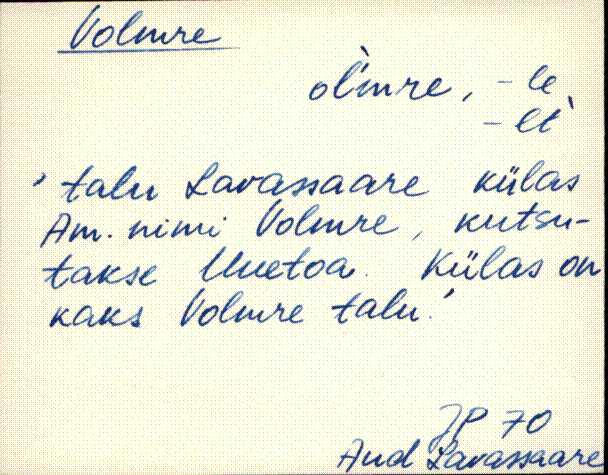 Volmre
ol̀mre, -le
-lt̀
' talu Lavassaare külas
Am. nimi Volmre, kutsu-
takse Uuetoa. Külas on
kaks Volmre talu.'
JP 70
Aud Lavassaare